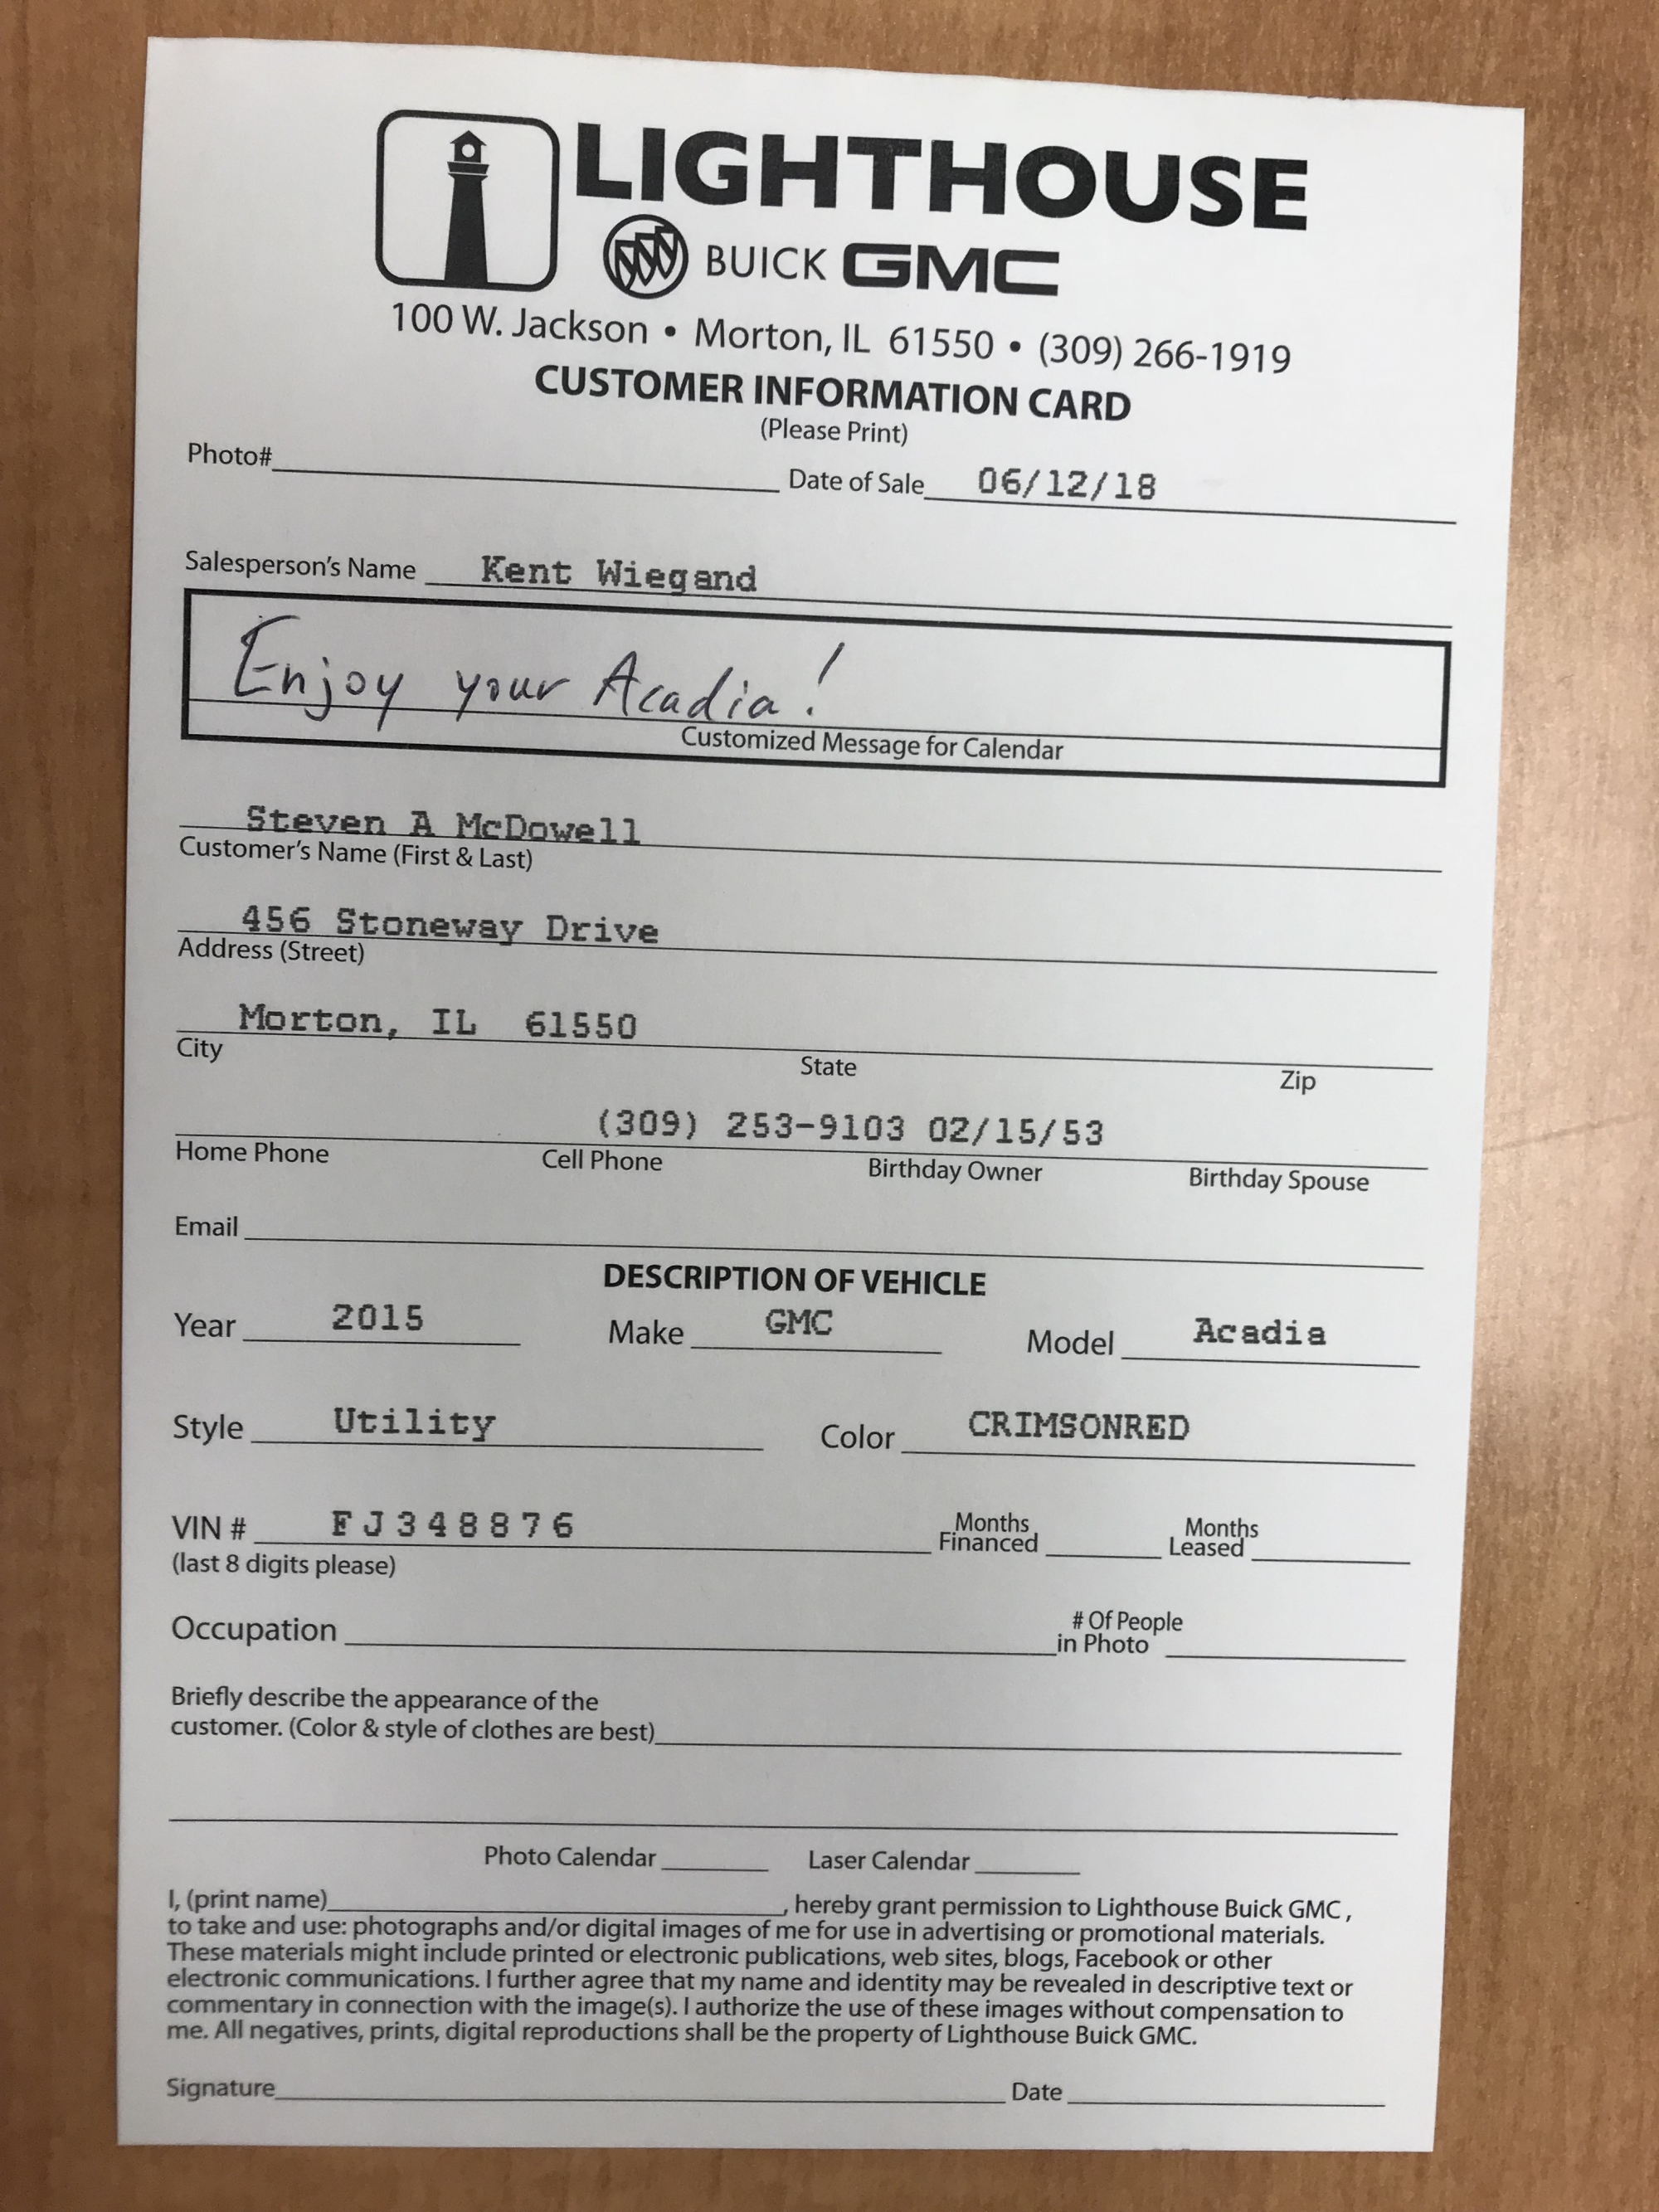 LIGHTHOUSE
BUICK GMC
100 W. Jackson • Morton, IL 61550 • (309) 266-1919
CUSTOMER INFORMATION CARD
(Please Print)
Photo# Date of Sale 06/12/18
Salesperson's Name Kent Wiegand
Enjoy your Acadia!
Customized Message for Calendar
Steven A McDowell
Customer's Name (First & Last)
456 Stoneway Drive
Address (Street)
Morton, IL 61550
City State Zip
(309) 253-9103 02/15/53
Home Phone Cell Phone Birthday Owner Birthday Spouse
Email
DESCRIPTION OF VEHICLE
Year 2015 Make GMC Model Acadia
Style Utility Color CRIMSONRED
VIN # FJ348876 Months Financed Months Leased
(last 8 digits please)
Occupation # Of People in Photo
Briefly describe the appearance of the
customer. (Color & style of clothes are best)
Photo Calendar Laser Calendar
I, (print name) , hereby grant permission to Lighthouse Buick GMC,
to take and use: photographs and/or digital images of me for use in advertising or promotional materials.
These materials might include printed or electronic publications, web sites, blogs, Facebook or other
electronic communications. I further agree that my name and identity may be revealed in descriptive text or
commentary in connection with the image(s). I authorize the use of these images without compensation to
me. All negatives, prints, digital reproductions shall be the property of Lighthouse Buick GMC.
Signature Date